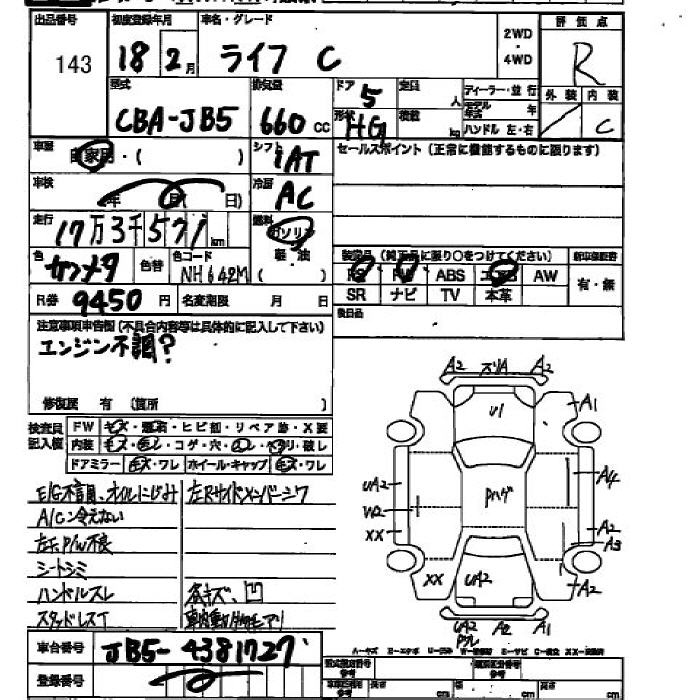 出品番号 初度登録年月 車名・グレード 評価点
143 18 2月 ライフ C 2WD・4WD R
型式 排気量 ドア 定員 ディーラー・並行 外装 内装
CBA-JB5 660cc 5 人 モデル年式 年
形状 HG 積載 kg ハンドル 左・右 C
車歴 自家用・( ) シフト IAT セールスポイント (正常に機能するものに限ります)
車検 年 月 日) 冷房 AC
走行 17万3千571km 燃料 ガソリン
軽・油 装備品 (純正品に限り○をつけてください) 新車保証書
色 ガンメタ 色替 色コード NH642M ( ) PS PW ABS エアB AW 有・無
R券 9450円 名変期限 月 日 SR ナビ TV 本革
後日品
注意事項申告欄(不具合内容等は具体的に記入して下さい)
エンジン不調?
修復歴 有 (箇所 )
検査員記入欄 FW キズ・飛石・ヒビ割・リペア跡・X要
内装 キズ・汚レ・コゲ・穴・破レ
ドアミラー キズ・ワレ ホイール・キャップ キズ・ワレ
E/G不調、オイルにじみ 左Rサイドメンバーシワ
A/C冷えない
左右P/W不良
シートシミ
ハンドルスレ 各キズ、凹
スタッドレスT
車台番号 JB5-4381727
登録番号
A2 A2
U1 A1
UA2 Pハゲ A4
UA2
XX A2
A3
XX UA2 A2
UA2 A2 A1
A-キズ
型式指定番号 類別区分番号
参考 参考
車両区分 長さ cm 幅 cm 高さ cm